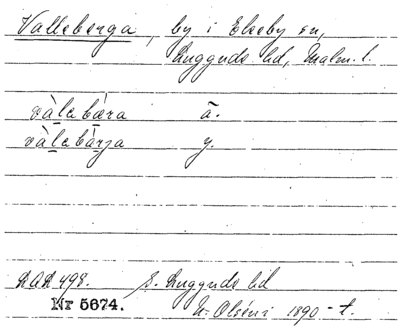 Valleberga, by i Ekeby sn,
Luggude hd, Malm. l.
vàlabæra ä.
vàlabàrja y.
DAL 498. S. Luggude hd
Nr 5674. N. Olséni 1890-t.